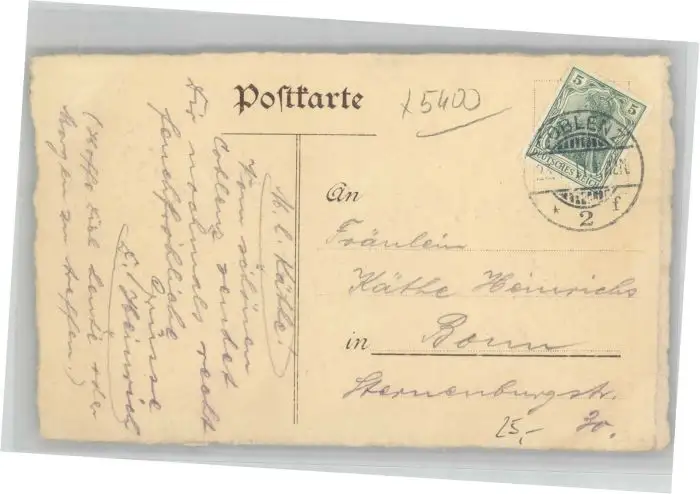 Postkarte
x 5400
5 5
DEUTSCHES REICH
COBLENZ
* 2 f
An
Fräulein
Käthe Heinrichs
in Bonn
Sternenburgstr.
30.
25,-
M. l. Käthe!
Vom schönen
Coblenz sendet
Dir nochmals recht
feuchtfröhliche
Grüsse
D. Heinrich
(Hoffe Dich heute oder
Morgen zu treffen.)